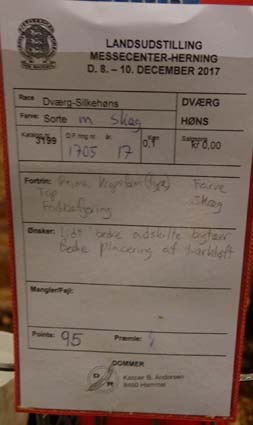 LANDSUDSTILLING
MESSECENTER-HERNING
D. 8. - 10. DECEMBER 2017
Race Dværg-Silkehøns DVÆRG
Farve: Sorte m skæg HØNS
Katalog nr. D.F. ring nr. år Køn Salgspris
3199 1705 17 0,1 kr 0,00
Fortrin: Prima Kropsform (type) Farve
Top Skæg
Fodbefjering
Ønsker: Lidt bedre adskilte bagtæer
Bedre placering af
Mangler/Fejl:
Points: 95 Præmie:
DOMMER
DR Kasper B. Andersen
8450 Hammel